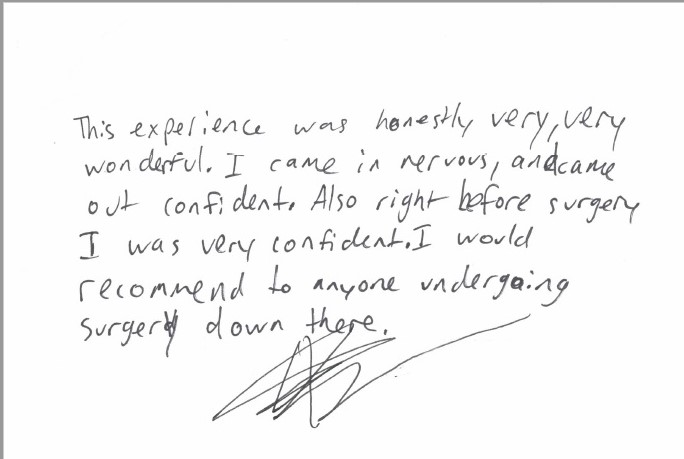 This experience was honestly very, very
wonderful. I came in nervous, and came
out confident. Also right before surgery
I was very confident. I would
recommend to anyone undergoing
surgery down there.